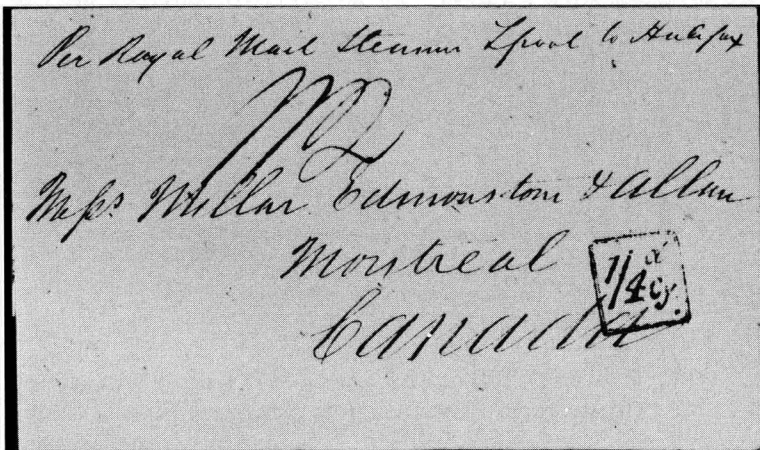 Per Royal Mail Steamer Lpool to Halifax
Messrs Millar Edmonstone & Allan
Montreal
1/4 Cy.
Canada